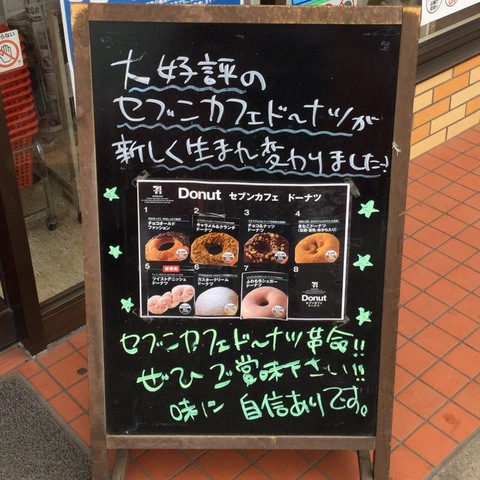 大好評の
セブンカフェドーナツが
新しく生まれ変わりました!
Donut セブンカフェ ドーナツ
1
チョコオールド
ファッション
2
キャラメル&クランチ
ドーナツ
3
チョコ&ナッツ
ドーナツ
4
きなこドーナツ
5
新発売
ツイストデニッシュ
ドーナツ
6
カスタードクリーム
ドーナツ
7
ふわもちシュガー
ドーナツ
8
Donut
セブンカフェ
ドーナツ
セブンカフェドーナツ革命!!
ぜひご賞味下さい!!
味に自信ありです。